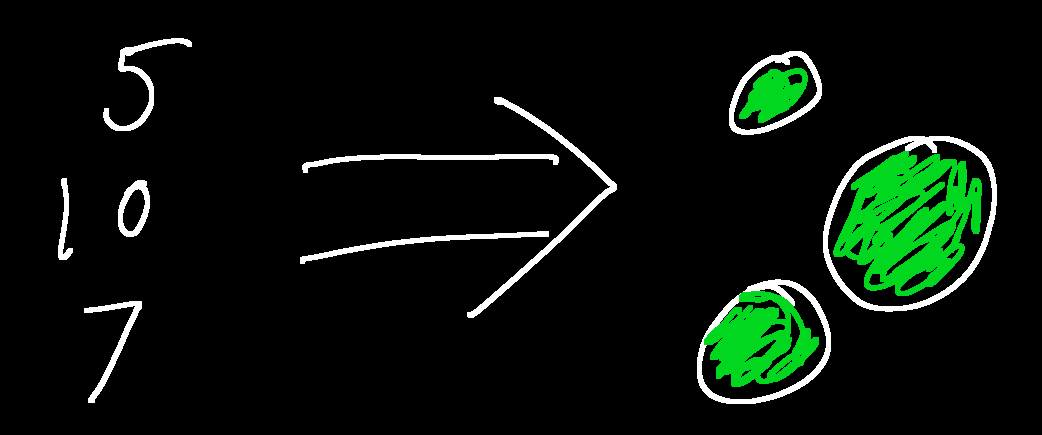 5
10
7